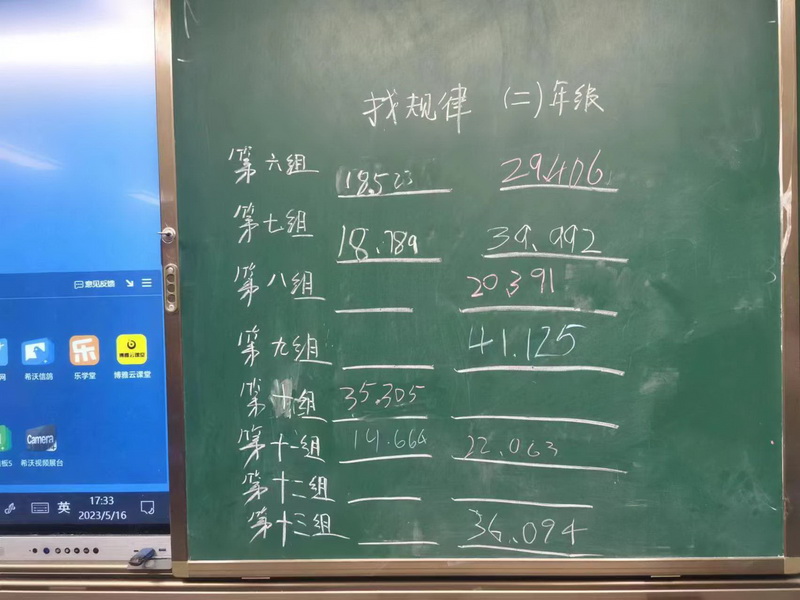 找规律 (二)年级
第六组 18.523 29.406
第七组 18.789 39.992
第八组 20.391
第九组 41.125
第十组 35.305
第十一组 14.666 22.063
第十二组
第十三组 36.094
意见反馈
希沃信鸽 乐学堂 博雅云课堂
乐
Camera
希沃视频展台
英 17:33
2023/5/16